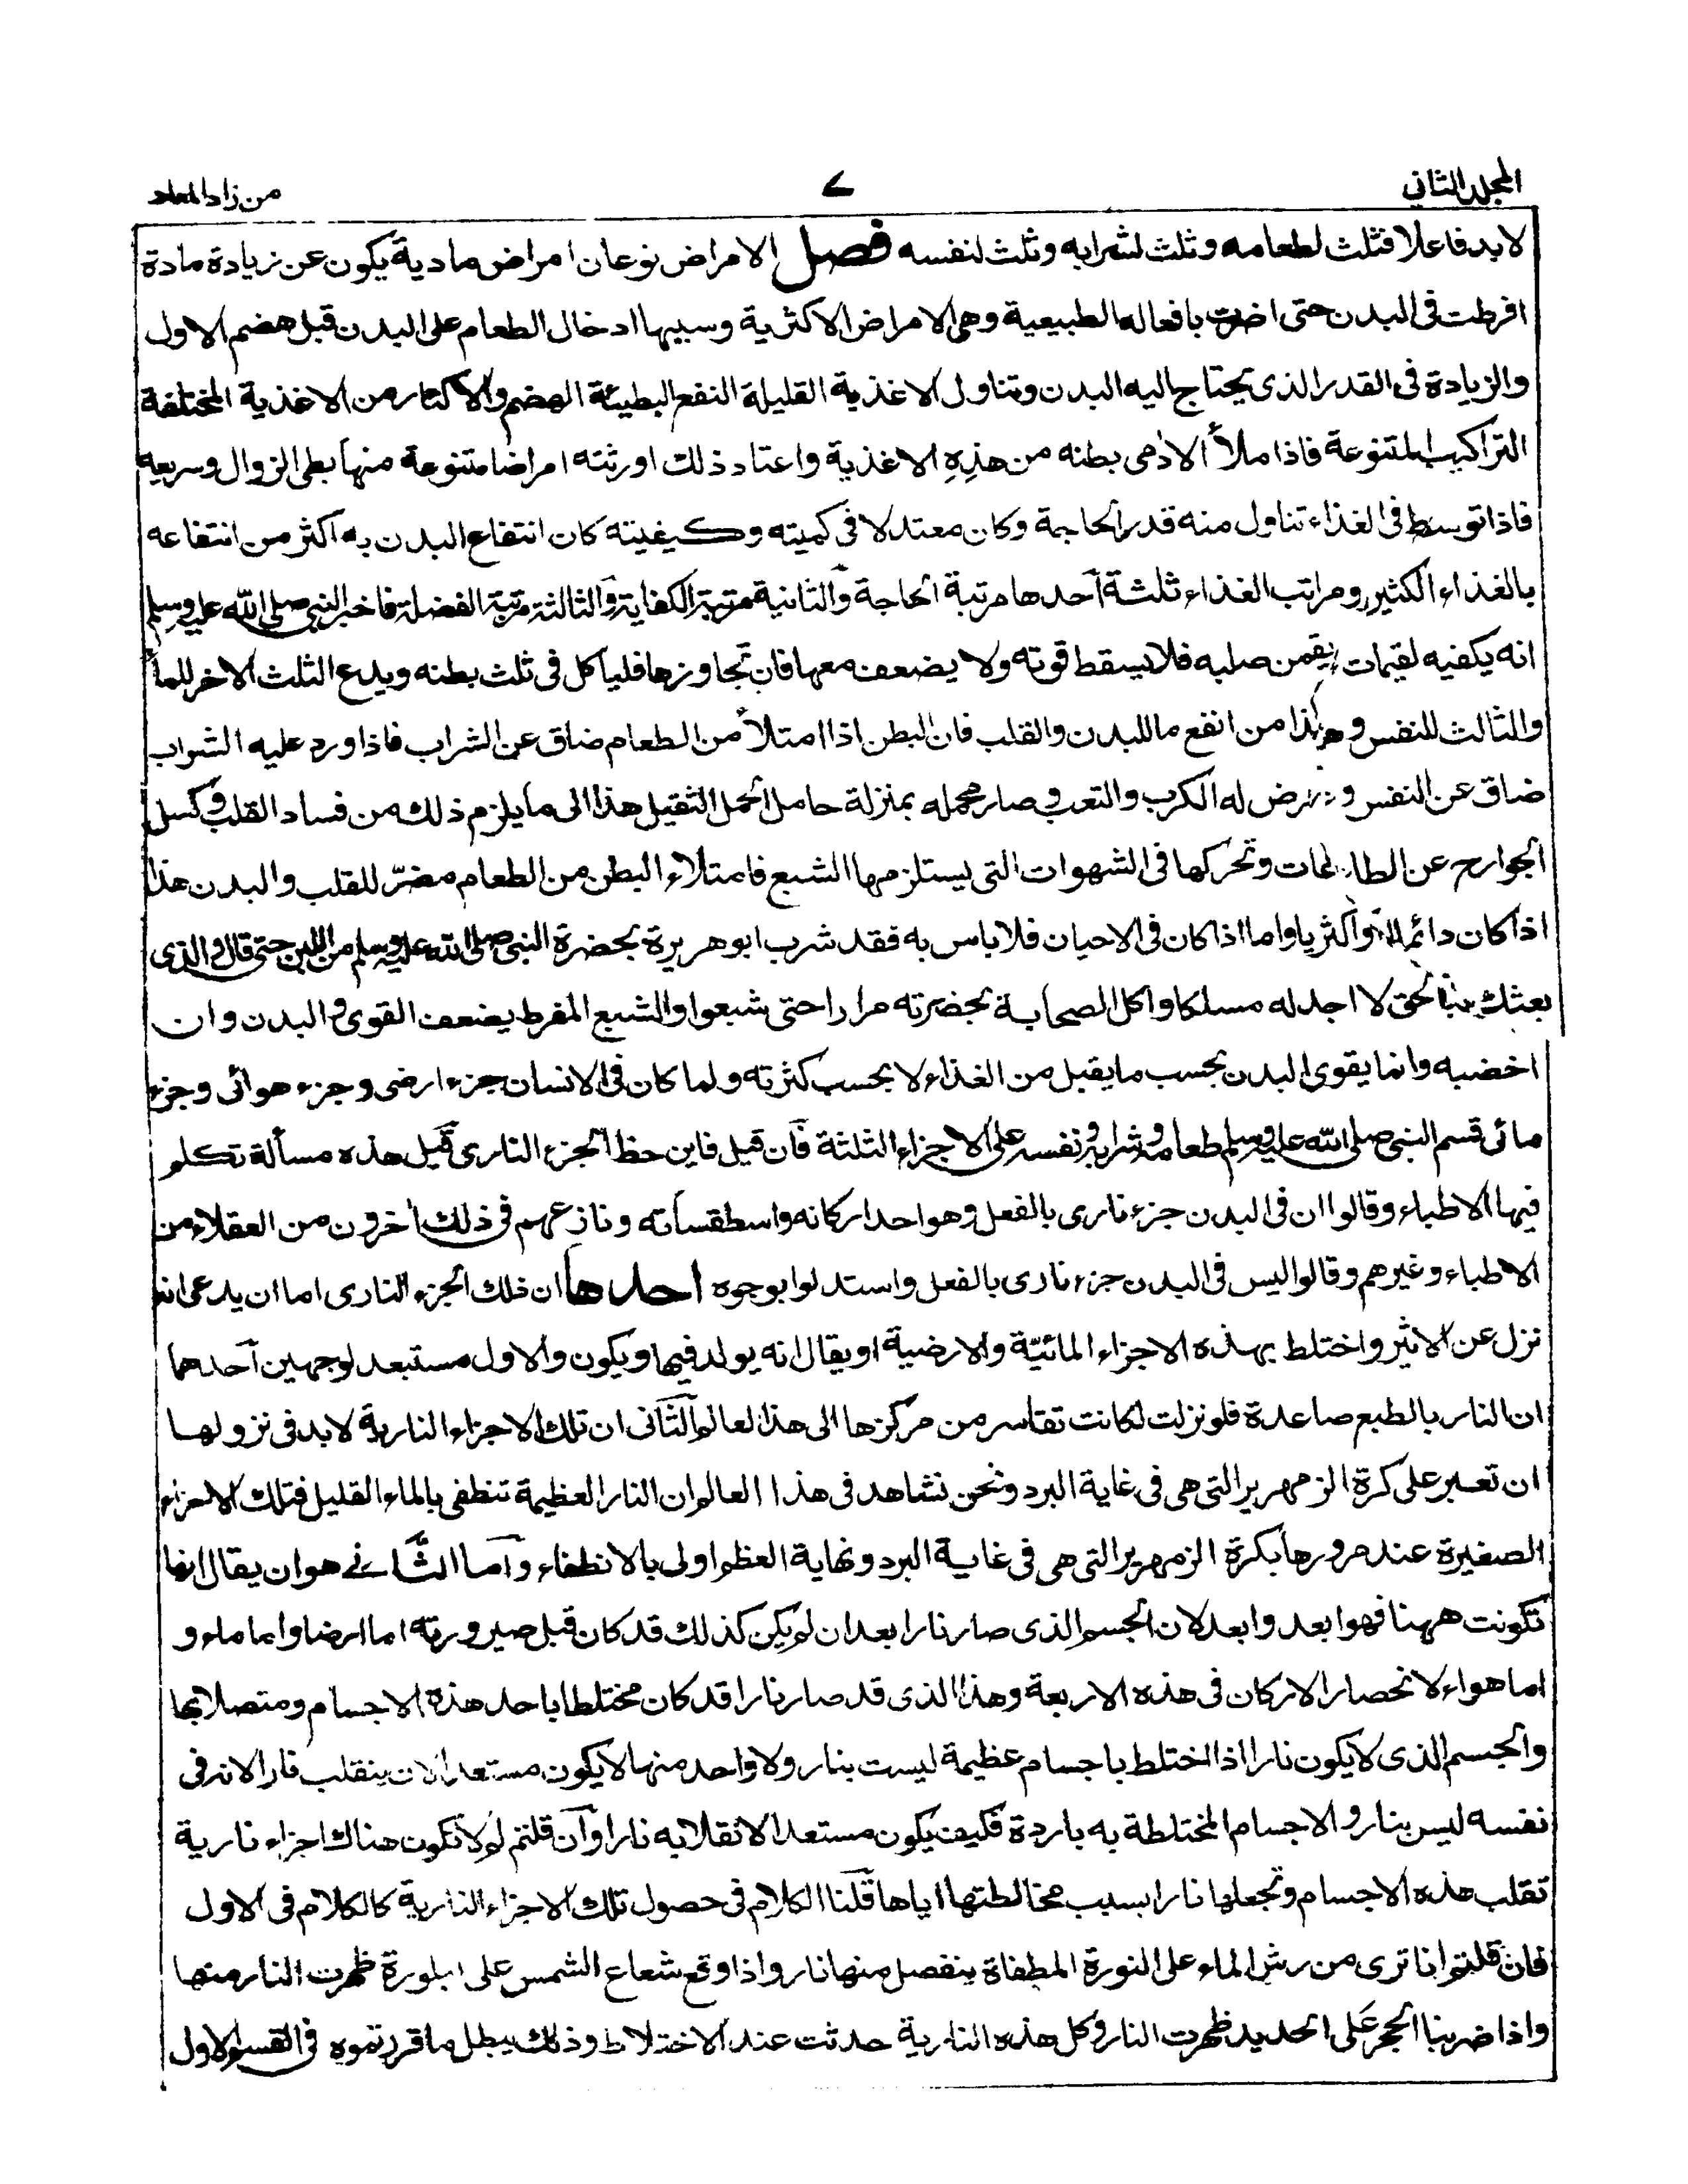 المجلد الثاني ٧ من زاد المعاد
لا بد فاعلا فثلث لطعامه وثلث لشرابه وثلث لنفسه فصل الامراض نوعان امراض مادية يكون عن زيادة مادة
افرطت فى البدن حتى اضرت بافعاله الطبيعية وهى الامراض الاكثرية وسببها ادخال الطعام على البدن قبل هضم الاول
والزيادة فى القدر الذى يحتاج اليه البدن وتناول الاغذية القليلة النفع البطيئة الهضم والاكثار من الاغذية المختلفة
التراكيب المتنوعة فاذا ملأ الآدمى بطنه من هذه الاغذية واعتاد ذلك اورثته امراضا متنوعة منها بطى الزوال وسريعه
فاذا توسط فى الغذاء تناول منه قدر الحاجة وكان معتدلا فى كميته وكيفيته كان انتفاع البدن به اكثر من انتفاعه
بالغذاء الكثير ومراتب الغذاء ثلثة احدها مرتبة الحاجة والثانية مرتبة الكفاية والثالثة مرتبة الفضلة فاخبر النبى صلى الله عليه وسلم
انه يكفيه لقيمات يقمن صلبه فلا يسقط قوته ولا يضعف معها فان تجاوزها فلياكل فى ثلث بطنه ويدع الثلث الاخر للماء
والثالث للنفس وهذا من انفع ما للبدن والقلب فان البطن اذا امتلأ من الطعام ضاق عن الشراب فاذا ورد عليه الشراب
ضاق عن النفس وعرض له الكرب والتعب وصار محمله بمنزلة حامل الحمل الثقيل هذا الى ما يلزم ذلك من فساد القلب وكسل
الجوارح عن الطاعات وتحركها فى الشهوات التى يستلزمها الشبع فامتلاء البطن من الطعام مضرّ للقلب والبدن هذا
اذا كان دائما او اكثريا واما اذا كان فى الاحيان فلا باس به فقد شرب ابو هريرة بحضرة النبى صلى الله عليه وسلم من اللبن حتى قال والذى
بعثك بالحق لا اجد له مسلكا واكل الصحابة بحضرته مرارا حتى شبعوا والشبع المفرط يضعف القوى والبدن وان
اخضبه وانما يقوى البدن بحسب ما يقبل من الغذاء لا بحسب كثرته ولما كان فى الانسان جزء ارضى وجزء هوائى وجزء
مائى قسم النبى صلى الله عليه وسلم طعامه وشرابه ونفسه على الاجزاء الثلثة فان قيل فاين حظ الجزء النارى قيل هذه مسألة تكلم
فيها الاطباء وقالوا ان فى البدن جزء نارى بالفعل وهو احد اركانه واسطقساته ونازعهم فى ذلك آخرون من العقلاء من
الاطباء وغيرهم وقالوا ليس فى البدن جزء نارى بالفعل واستدلوا بوجوه احدها ان ذلك الجزء النارى اما ان يدعى انه
نزل عن الاثير واختلط بهذه الاجزاء المائيّة والارضية او يقال انه يولد فيها ويكون والاول مستبعد لوجهين احدهما
ان النار بالطبع صاعدة فلو نزلت لكانت تقاسر من مركزها الى هذا العالم الثانى ان تلك الاجزاء النارية لا بد فى نزولها
ان تعبر على كرة الزمهرير التى هى فى غاية البرد ونحن نشاهد فى هذا العالم ان النار العظيمة تنطفى بالماء القليل فتلك الاجزاء
الصغيرة عند مرورها بكرة الزمهرير التى هى فى غاية البرد ونهاية العظم اولى بالانطفاء واما الثانے هو ان يقال انها
تكونت ههنا فهو ابعد وابعد لان الجسم الذى صار نارا بعد ان لم يكن كذلك قد كان قبل صيرورته اما ارضا واما ماء و
اما هواء لانحصار الاركان فى هذه الاربعة وهذا الذى قد صار نارا قد كان مختلطا باحد هذه الاجسام ومتصلا بها
والجسم الذى لا يكون نارا اذا اختلط باجسام عظيمة ليست بنار ولا واحد منها لا يكون مستعدا لان ينقلب نارا لانه فى
نفسه ليس بنار والاجسام المختلطة به باردة فكيف يكون مستعدا لانقلابه نارا وان قلتم لم لا تكون هناك اجزاء نارية
تقلب هذه الاجسام وتجعلها نارا بسبب مخالطتها اياها قلنا الكلام فى حصول تلك الاجزاء النارية كالكلام فى الاول
فان قلتم انا نرى من رش الماء على النورة المطفاة ينفصل منها نار واذا وقع شعاع الشمس على ابلورة ظهرت النار منها
واذا ضربنا الحجر على الحديد ظهرت النار وكل هذه النارية حدثت عند الاختلاط وذلك يبطل ما قررتموه فى القسم الاول